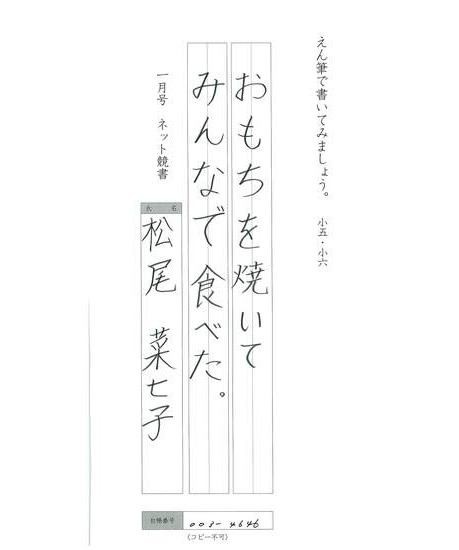 えん筆で書いてみましょう。 小五・小六
おもちを焼いて
みんなで食べた。
一月号 ネット競書
氏名
松尾 菜七子
台帳番号
003-4646
(コピー不可)